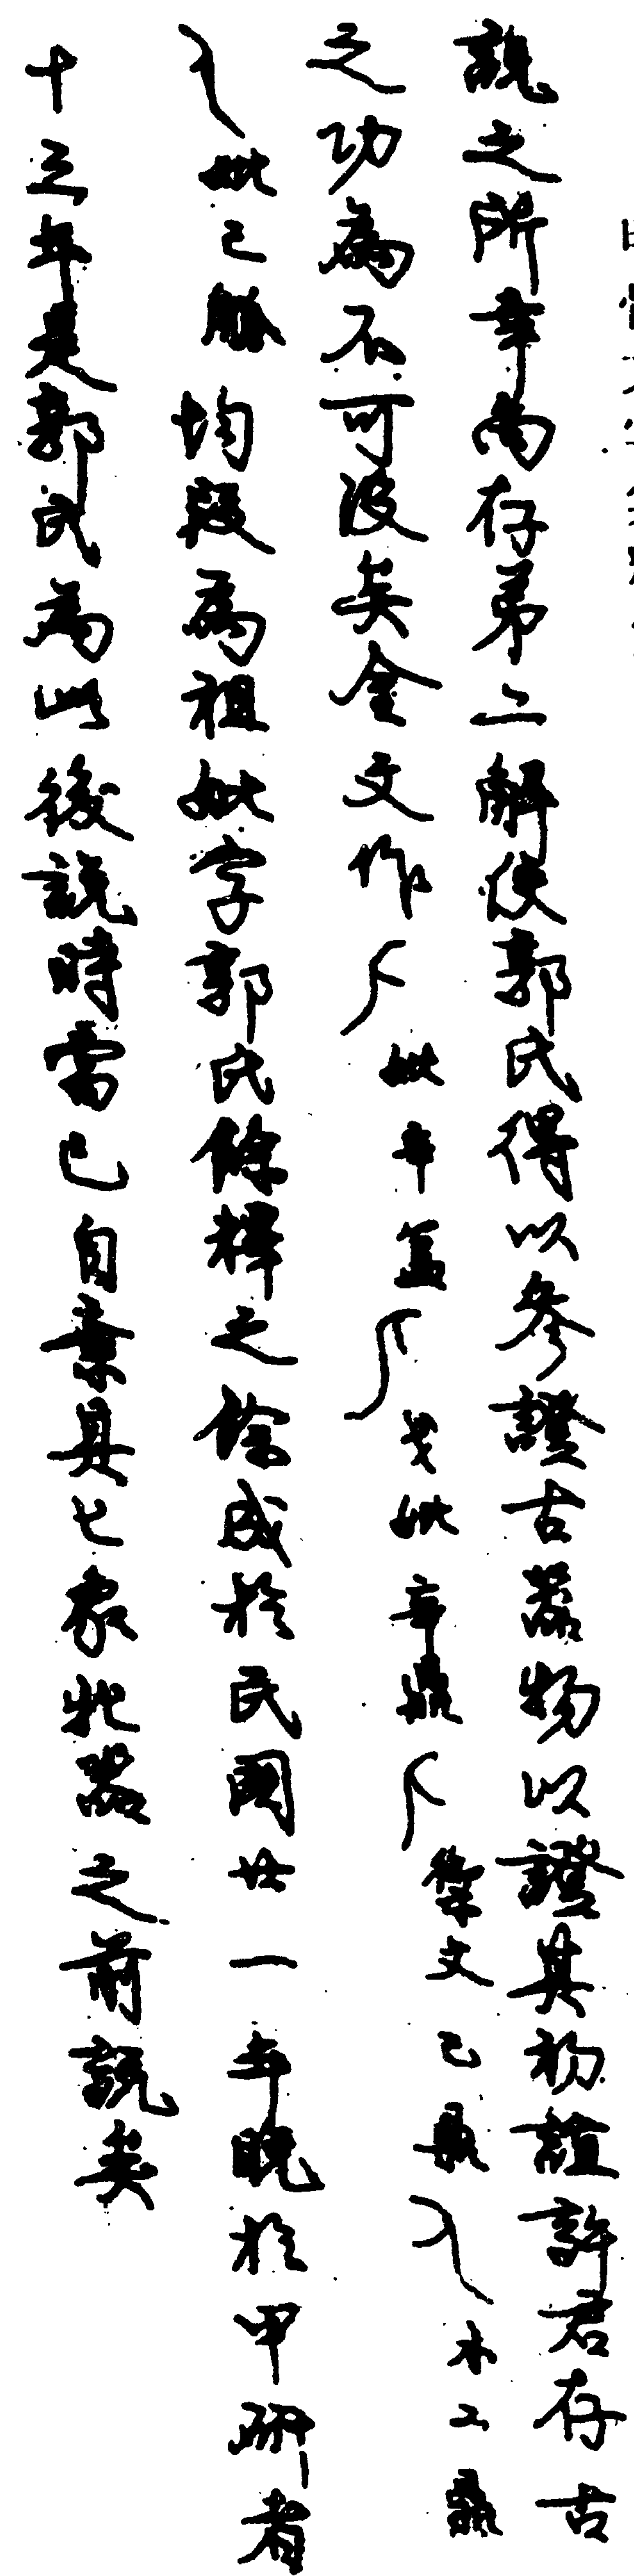 說之所幸尚存弟二解使郭氏得以參證古器物以證其初誼許君存古
之功為不可沒矣金文作 妣辛簋 戈妣辛鼎 犂文 己鼎 木工鼎
妣己觶均叚為祖妣字郭氏餘釋之餘成於民國廿一年晚於甲研者
十三年是郭氏為此後說時當已自棄其匕象牝器之前說矣